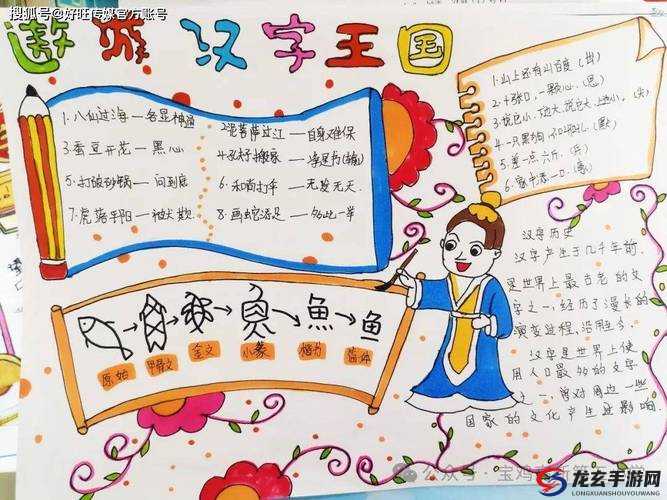 搜狐号@好旺传媒官方账号
遨游汉字王国
1.八仙过海——各显神通
2.泥菩萨过江——自身难保
3.蚕豆开花——黑心
4.孔夫子搬家——净是书(输)
5.打破砂锅——问到底
6.和尚打伞——无发无天
7.虎落平阳——被犬欺
8.画蛇添足——多此一举
1.山上还有山
(出)
2.十张口,一颗心.(思)
(头)
(默)
5.差一点六斤.(兵)
原始
甲骨文
金文
小篆
楷体
魚
鱼
汉字历史
汉字产生于几千年前.
是世界上最古老的文
字之一,经历了漫长的
演变过程,沿用至今.
汉字是世界上使
用人口最多的文字
之一,曾对周边一些
国家的文化产生过影响
公众号·宝鸡
龙玄手游网
LONGXUANSHOUYOUWANG